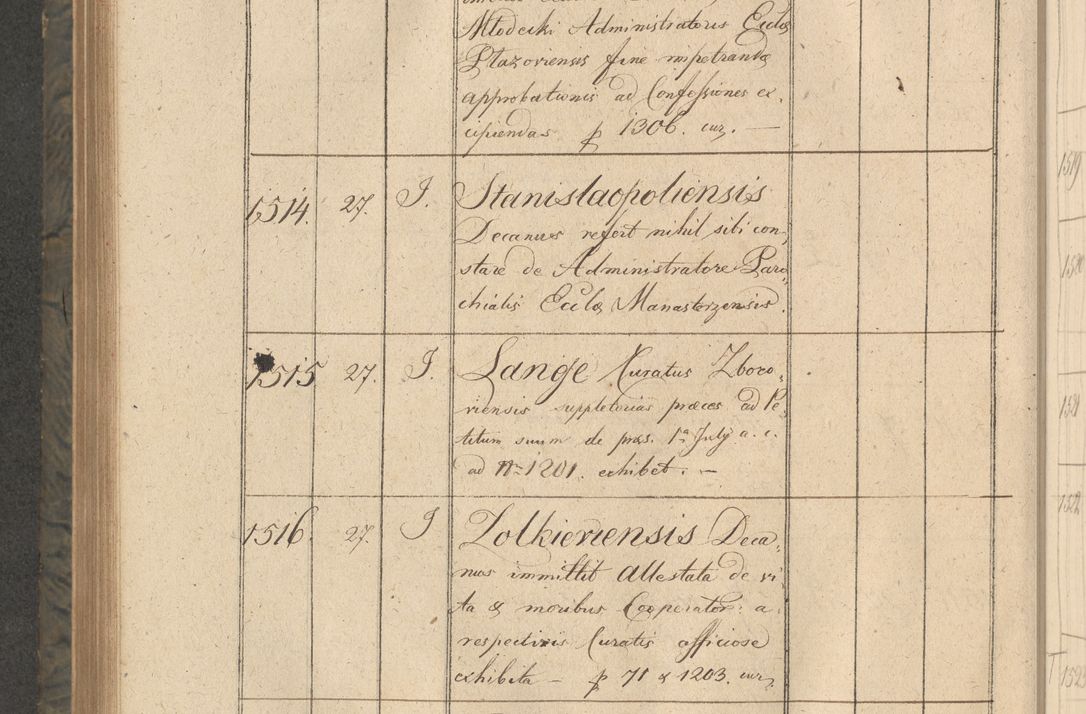 Młodecki Administratoris Eccles
Płazoviensis fine impetrandæ
approbationis ad Confessiones ex,
cipiendas p 1306. cur. —
1514. 27. J. Stanislaopoliensis
Decanus refert nihil sibi con,
stare de Administratore Paro,
chialis Eccles Manasterzensis.
1515 27. J. Lange Curatus Zboro,
viensis suppletorias præces ad Pe,
titum suum de præs. 1a July a. c.
ad No 1201. exhibet. —
1516. 27. J Zolkieviensis Deca,
nus immittit Attestata de vi,
ta & moribus Cooperator. a
respectivis Curatis officiose
exhibita — p 71 & 1203. cur.
1519
1520
1521
1522
1523